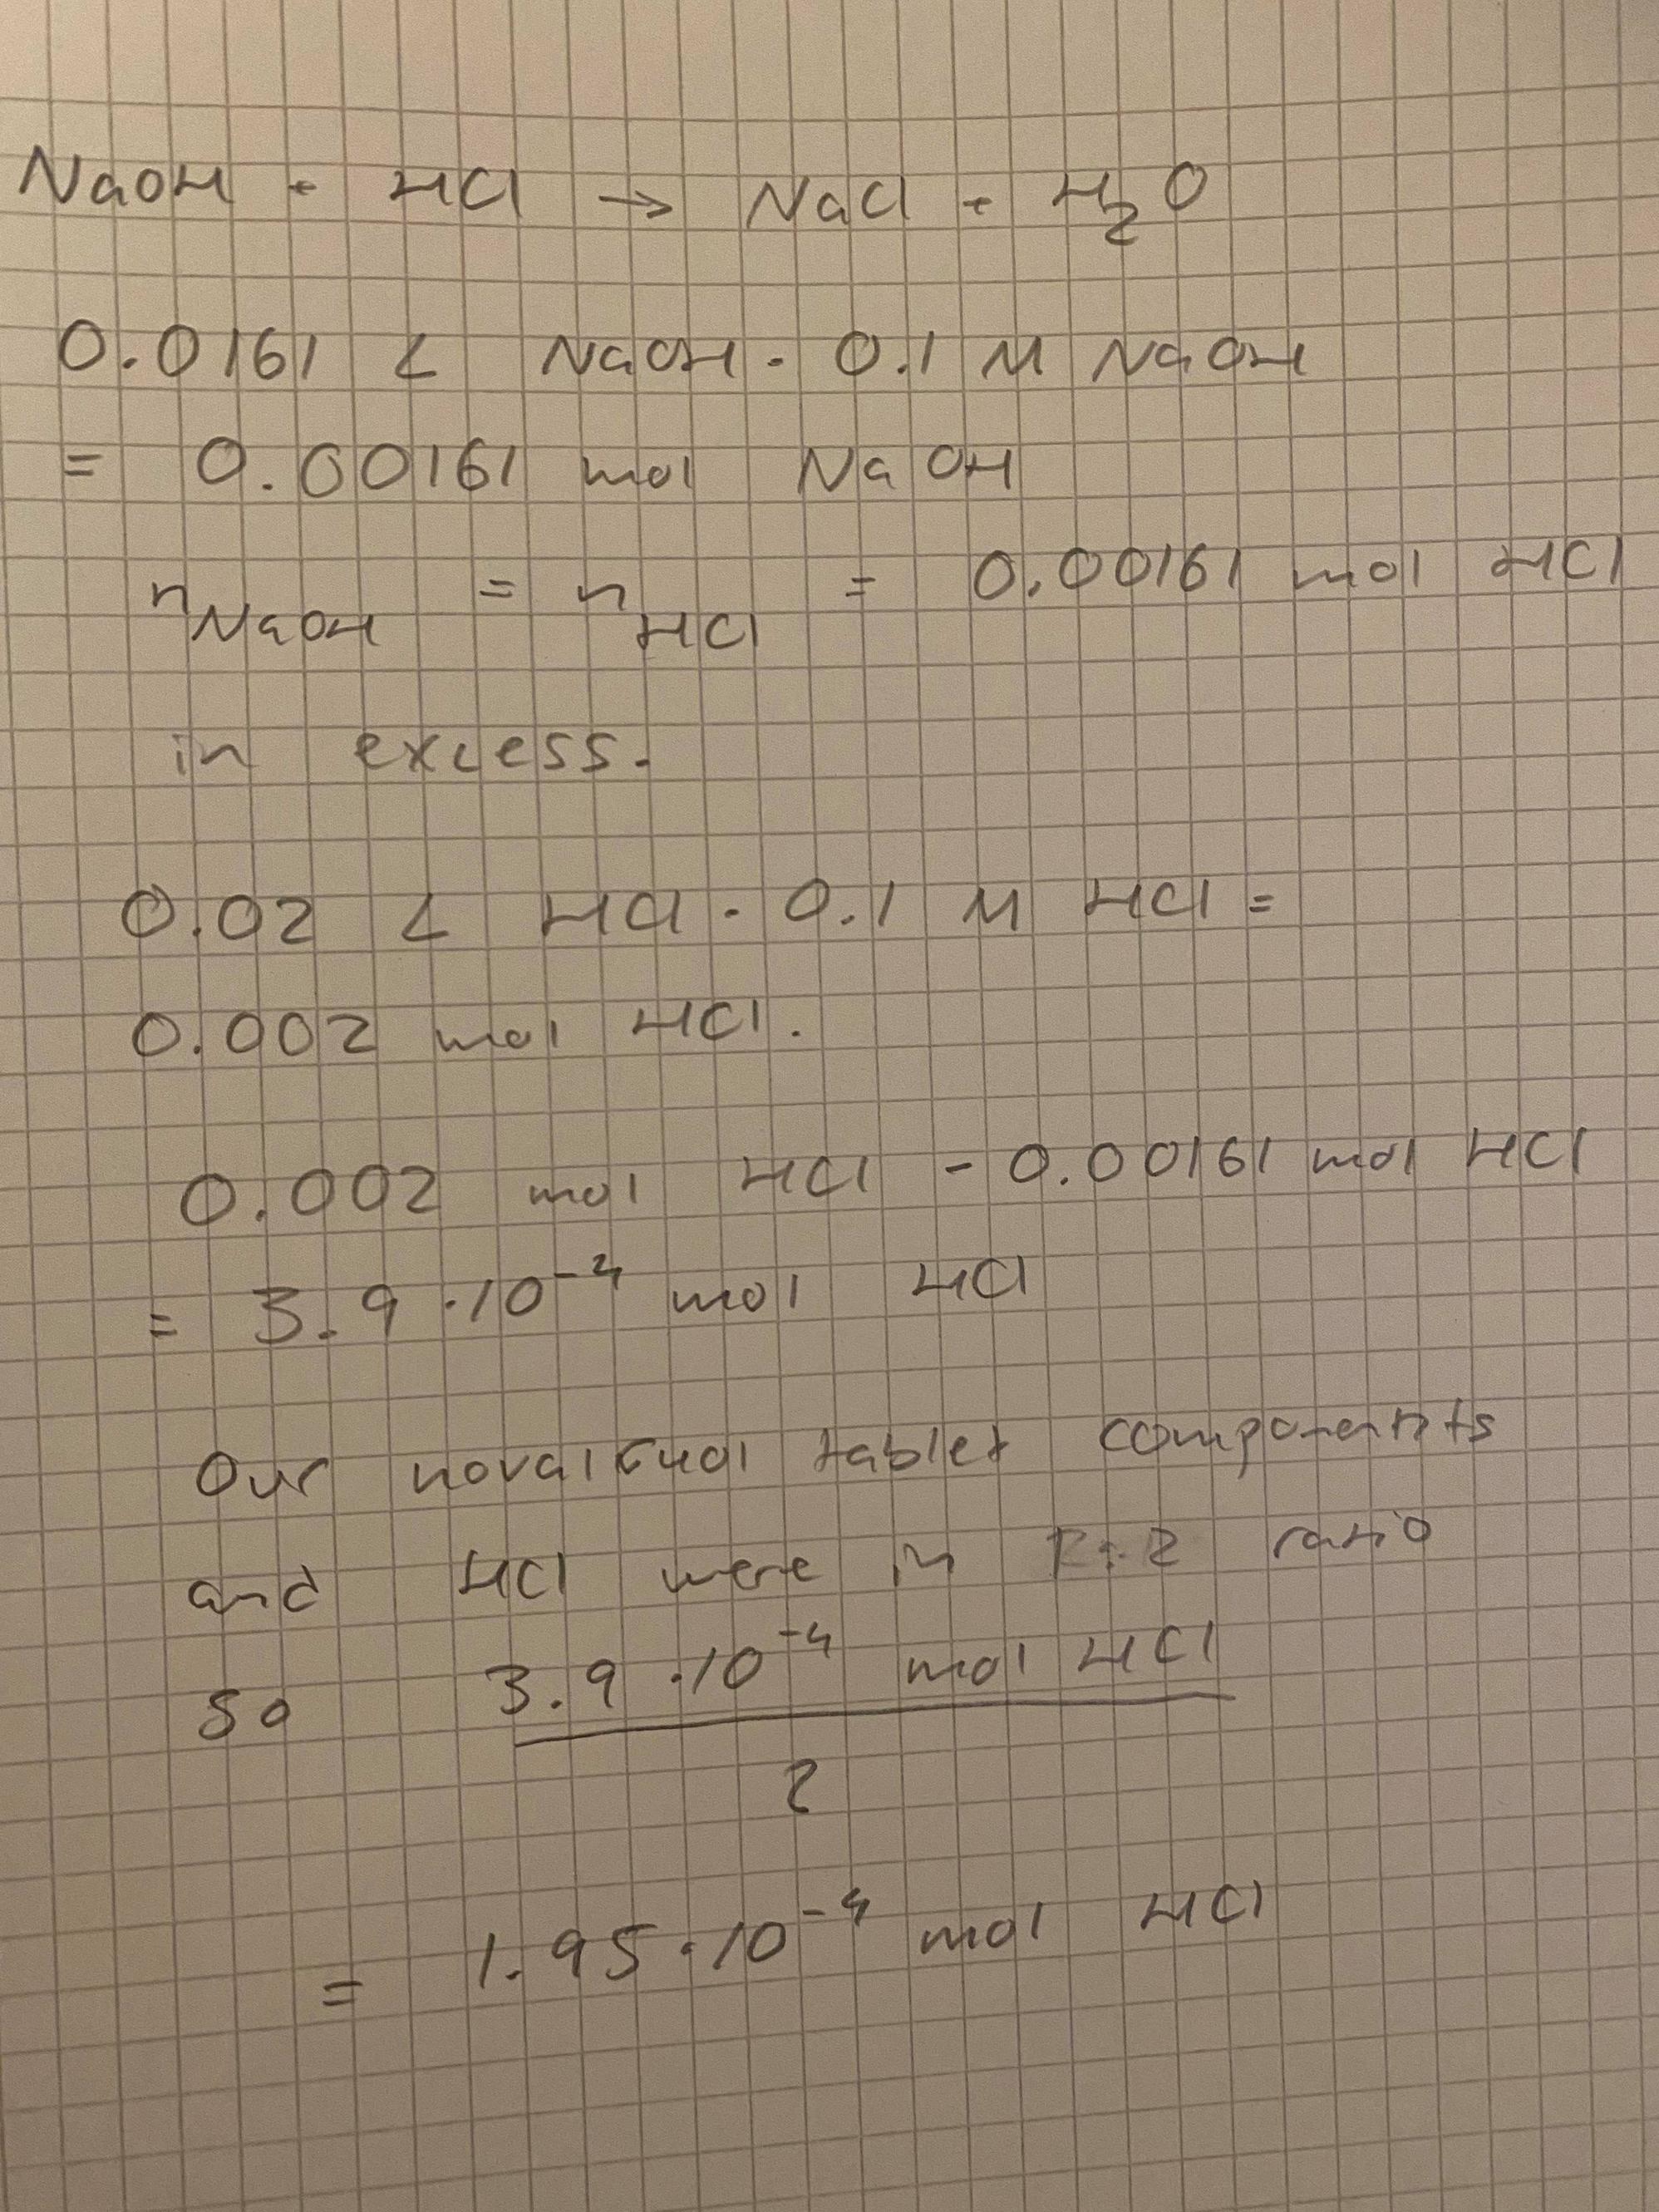 NaOH + HCl → NaCl + H₂O
0.0161 L NaOH · 0.1 M NaOH
= 0.00161 mol NaOH
n_NaOH = n_HCl = 0.00161 mol HCl
in excess.
0.02 L HCl · 0.1 M HCl =
0.002 mol HCl.
0.002 mol HCl - 0.00161 mol HCl
= 3.9 · 10⁻⁴ mol HCl
Our tablet components
and HCl were in ratio
so 3.9 · 10⁻⁴ mol HCl
2
= 1.95 · 10⁻⁴ mol HCl